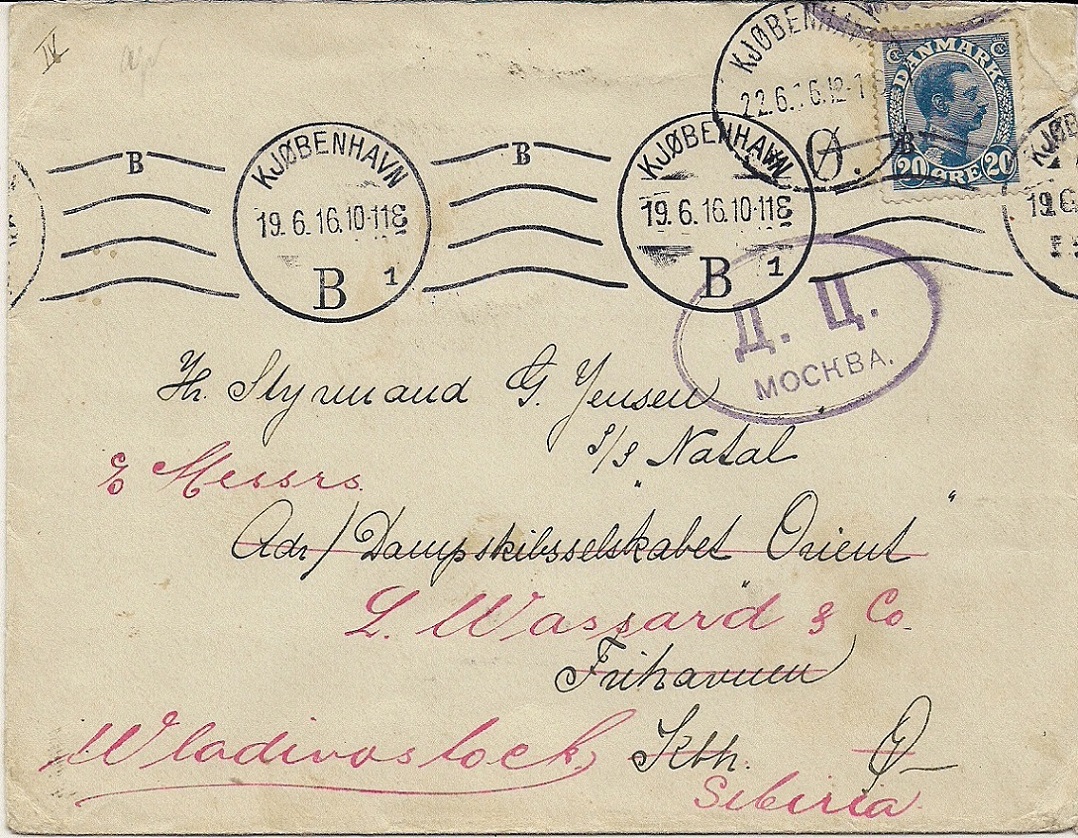 IV
KJØBENHAVN
22.6.16.12-1
Ø.
DANMARK
20 ØRE 20
B
KJØBENHAVN
19.6.16.10-11E
B 1
B
KJØBENHAVN
19.6.16.10-11E
B 1
B
KJØB
19.6
Д. Ц.
МОСКВА.
Hr. Styrmand G. Jensen
S/S Natal
& Messrs.
Adr/ Dampskibsselskabet "Orient"
L. Wassard & Co.
Frihavnen
Wladivostock, Kbh. Ø
Siberia.